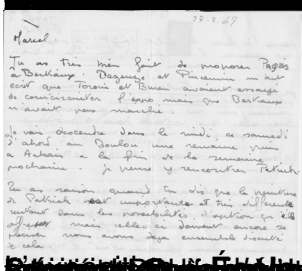 29.8.69
Marcel
Tu as très bien fait de proposer PAGÈS
à Bertiaux. Dezeuze et Pincemin m'ont
écrit que Toroni et Buren avaient essayé
de concurrencer l'expo mais que Bertiaux
n'avait pas marché.
Je vais descendre dans le midi, ce samedi
d'abord au Boulou une semaine puis
à la fin de la semaine
prochaine. Je pense y rencontrer Patrick.
Tu as raison quand tu dis que la peinture
de Patrick est importante et très différente
surtout dans les possibilités d'option qu'elle
offre mais celles-ci doivent encore se
nous avons déjà ensemble discuté
de cela.